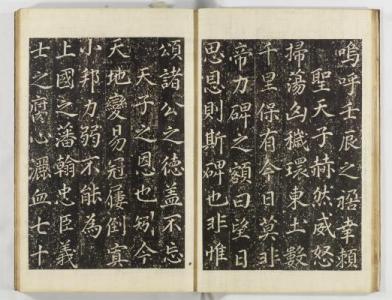 嗚呼壬辰之𭥍幸賴
聖天子赫然威怒
掃蕩凶穢環東土數
千里保有今日莫非
帝力碑之額曰望日
思恩則斯碑也非惟
頌諸公之德盖不忘
天子之恩也矧今
天地變易冠屨倒寘
小邦力弱不能為
上國之藩翰忠臣義
士之腐心灑血七十